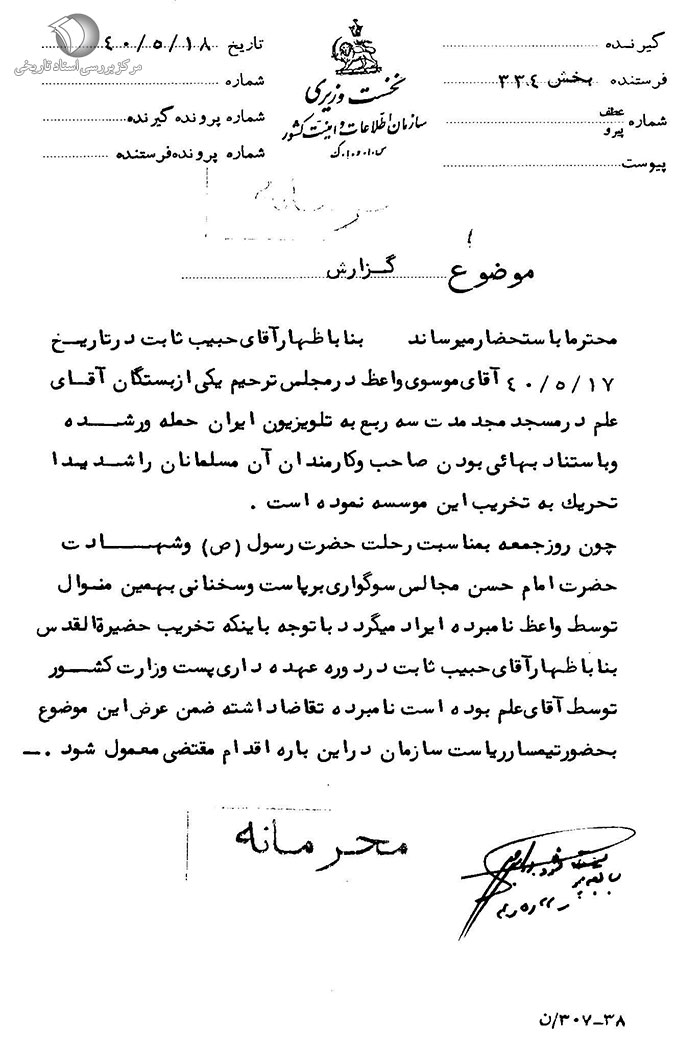 مرکز بررسی اسناد تاریخی
گیرنده
فرستنده بخش ۳۳۴
شماره عطف
پیرو
پیوست
نخست وزیری
سازمان اطلاعات و امنیت کشور
س.ا.و.ا.ک
تاریخ ۴۰/۵/۱۸
شماره
شماره پرونده گیرنده
شماره پرونده فرستنده
موضوع گزارش
محترما باستحضار میرساند بنا باظهار آقای حبیب ثابت در تاریخ
۴۰/۵/۱۷ آقای موسوی واعظ در مجلس ترحیم یکی از بستگان آقای
علم در مسجد مجد مدت سه ربع به تلویزیون ایران حمله ور شده
و باستناد بهائی بودن صاحب و کارمندان آن مسلمانان را شدیدا
تحریك به تخریب این موسسه نموده است .
چون روز جمعه بمناسبت رحلت حضرت رسول (ص) و شهادت
حضرت امام حسن مجالس سوگواری برپاست و سخنانی بهمین منوال
توسط واعظ نامبرده ایراد میگردد با توجه باینکه تخریب حضیرةالقدس
بنا باظهار آقای حبیب ثابت در دوره عهده داری پست وزارت کشور
توسط آقای علم بوده است نامبرده تقاضا داشته ضمن عرض این موضوع
بحضور تیمسار ریاست سازمان در این باره اقدام مقتضی معمول شود .ــ
محرمانه
۳۸-۳۰۷/ن